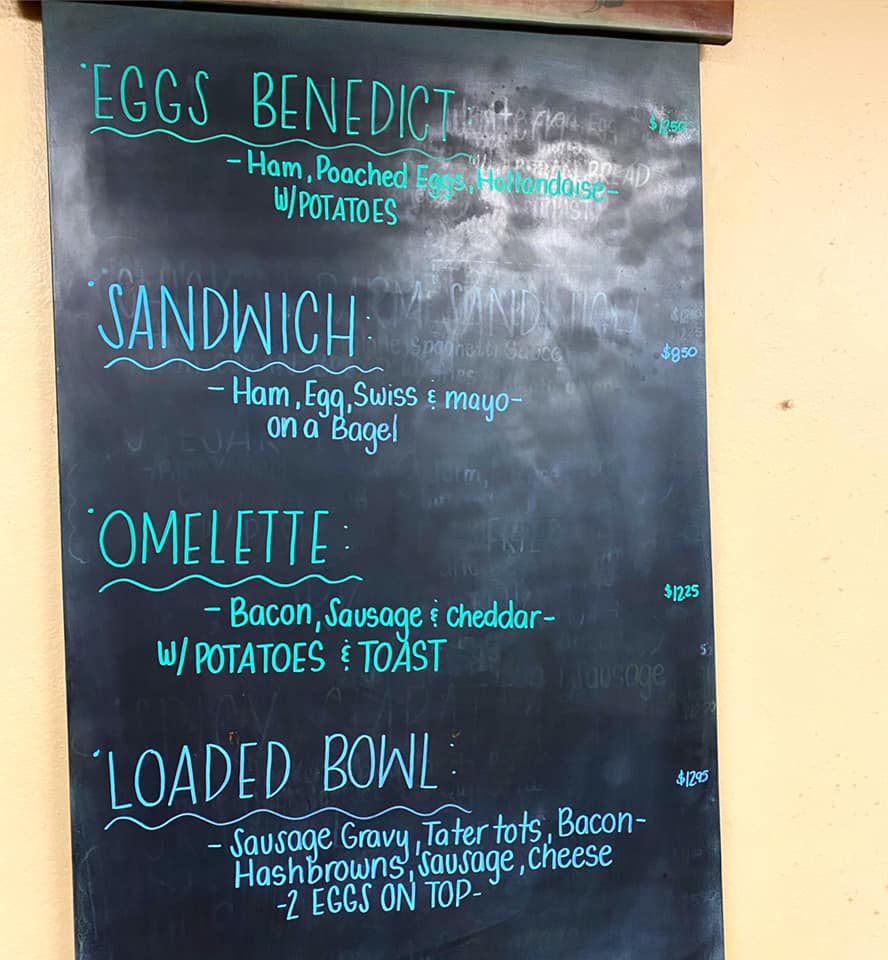 EGGS BENEDICT $1250
-Ham, Poached Eggs, Hollandaise-
W/POTATOES
SANDWICH: $850
-Ham, Egg, Swiss & mayo-
on a Bagel
OMELETTE:
$1225
-Bacon, Sausage & cheddar-
W/ POTATOES & TOAST
LOADED BOWL: $1295
-Sausage Gravy, Tater tots, Bacon-
Hashbrowns, Sausage, cheese
-2 EGGS ON TOP-